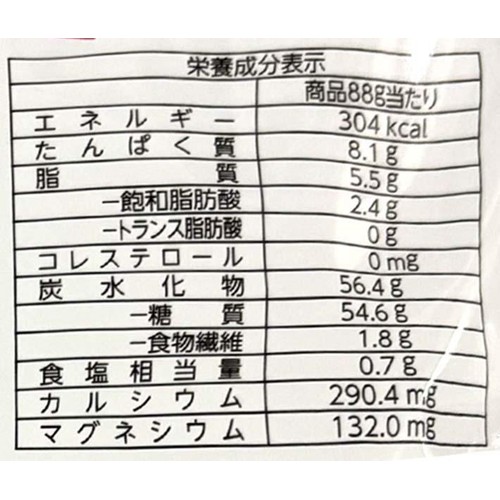 栄養成分表示
商品88g当たり
エネルギー 304kcal
たんぱく質 8.1g
脂質 5.5g
−飽和脂肪酸 2.4g
−トランス脂肪酸 0g
コレステロール 0mg
炭水化物 56.4g
−糖質 54.6g
−食物繊維 1.8g
食塩相当量 0.7g
カルシウム 290.4mg
マグネシウム 132.0mg